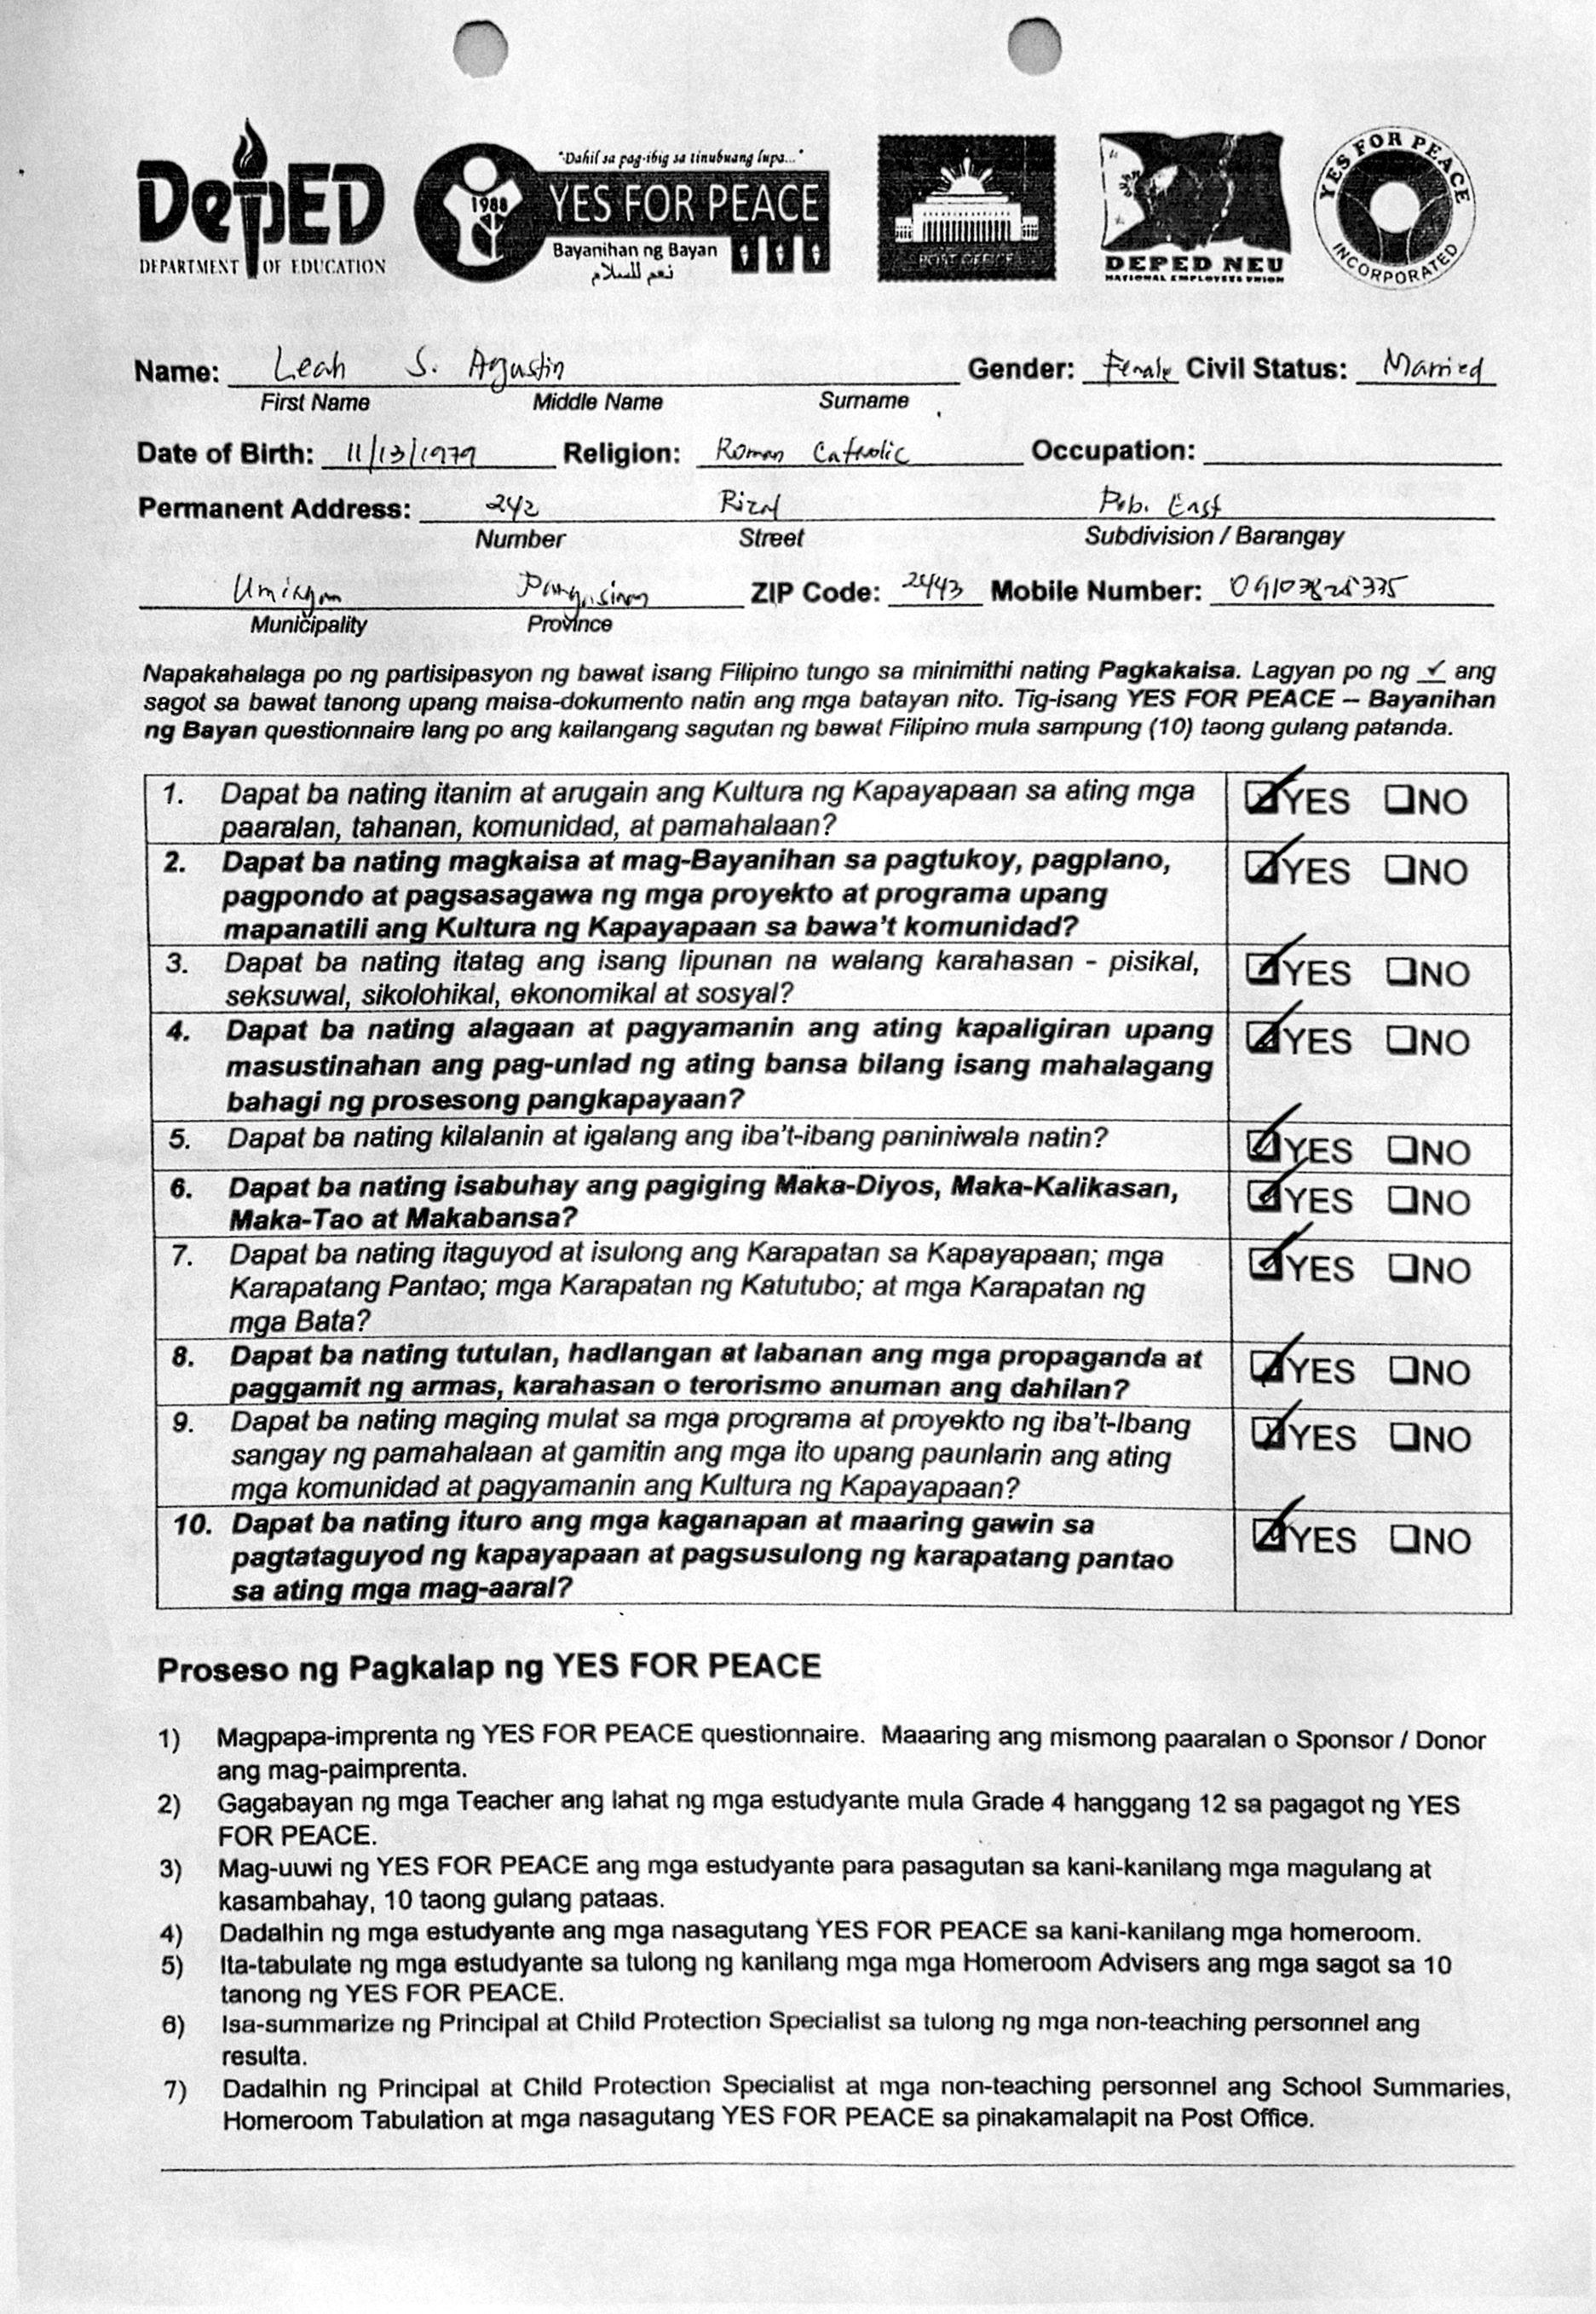 DepED
DEPARTMENT OF EDUCATION
"Dahil sa pag-ibig sa tinubuang lupa..."
1988
YES FOR PEACE
Bayanihan ng Bayan
نعم للسلام
POST OFFICE
DEPED NEU
NATIONAL EMPLOYEES UNION
YES FOR PEACE
INCORPORATED
Name: Leah S. Agustin Gender: Female Civil Status: Married
First Name Middle Name Surname
Date of Birth: 11/13/1979 Religion: Roman Catholic Occupation:
Permanent Address: 242 Rizal Pob. East
Number Street Subdivision / Barangay
Umingan Pangasinan ZIP Code: 2443 Mobile Number:
Municipality Province
Napakahalaga po ng partisipasyon ng bawat isang Filipino tungo sa minimithi nating Pagkakaisa. Lagyan po ng ✓ ang
sagot sa bawat tanong upang maisa-dokumento natin ang mga batayan nito. Tig-isang YES FOR PEACE – Bayanihan
ng Bayan questionnaire lang po ang kailangang sagutan ng bawat Filipino mula sampung (10) taong gulang patanda.
1. Dapat ba nating itanim at arugain ang Kultura ng Kapayapaan sa ating mga ☑YES ☐NO
paaralan, tahanan, komunidad, at pamahalaan?
2. Dapat ba nating magkaisa at mag-Bayanihan sa pagtukoy, pagplano, ☑YES ☐NO
pagpondo at pagsasagawa ng mga proyekto at programa upang
mapanatili ang Kultura ng Kapayapaan sa bawa't komunidad?
3. Dapat ba nating itatag ang isang lipunan na walang karahasan - pisikal, ☑YES ☐NO
seksuwal, sikolohikal, ekonomikal at sosyal?
4. Dapat ba nating alagaan at pagyamanin ang ating kapaligiran upang ☑YES ☐NO
masustinahan ang pag-unlad ng ating bansa bilang isang mahalagang
bahagi ng prosesong pangkapayaan?
5. Dapat ba nating kilalanin at igalang ang iba't-ibang paniniwala natin? ☑YES ☐NO
6. Dapat ba nating isabuhay ang pagiging Maka-Diyos, Maka-Kalikasan, ☑YES ☐NO
Maka-Tao at Makabansa?
7. Dapat ba nating itaguyod at isulong ang Karapatan sa Kapayapaan; mga ☑YES ☐NO
Karapatang Pantao; mga Karapatan ng Katutubo; at mga Karapatan ng
mga Bata?
8. Dapat ba nating tutulan, hadlangan at labanan ang mga propaganda at ☑YES ☐NO
paggamit ng armas, karahasan o terorismo anuman ang dahilan?
9. Dapat ba nating maging mulat sa mga programa at proyekto ng iba't-Ibang ☑YES ☐NO
sangay ng pamahalaan at gamitin ang mga ito upang paunlarin ang ating
mga komunidad at pagyamanin ang Kultura ng Kapayapaan?
10. Dapat ba nating ituro ang mga kaganapan at maaring gawin sa ☑YES ☐NO
pagtataguyod ng kapayapaan at pagsusulong ng karapatang pantao
sa ating mga mag-aaral?
Proseso ng Pagkalap ng YES FOR PEACE
1) Magpapa-imprenta ng YES FOR PEACE questionnaire. Maaaring ang mismong paaralan o Sponsor / Donor
ang mag-paimprenta.
2) Gagabayan ng mga Teacher ang lahat ng mga estudyante mula Grade 4 hanggang 12 sa pagagot ng YES
FOR PEACE.
3) Mag-uuwi ng YES FOR PEACE ang mga estudyante para pasagutan sa kani-kanilang mga magulang at
kasambahay, 10 taong gulang pataas.
4) Dadalhin ng mga estudyante ang mga nasagutang YES FOR PEACE sa kani-kanilang mga homeroom.
5) Ita-tabulate ng mga estudyante sa tulong ng kanilang mga mga Homeroom Advisers ang mga sagot sa 10
tanong ng YES FOR PEACE.
6) Isa-summarize ng Principal at Child Protection Specialist sa tulong ng mga non-teaching personnel ang
resulta.
7) Dadalhin ng Principal at Child Protection Specialist at mga non-teaching personnel ang School Summaries,
Homeroom Tabulation at mga nasagutang YES FOR PEACE sa pinakamalapit na Post Office.